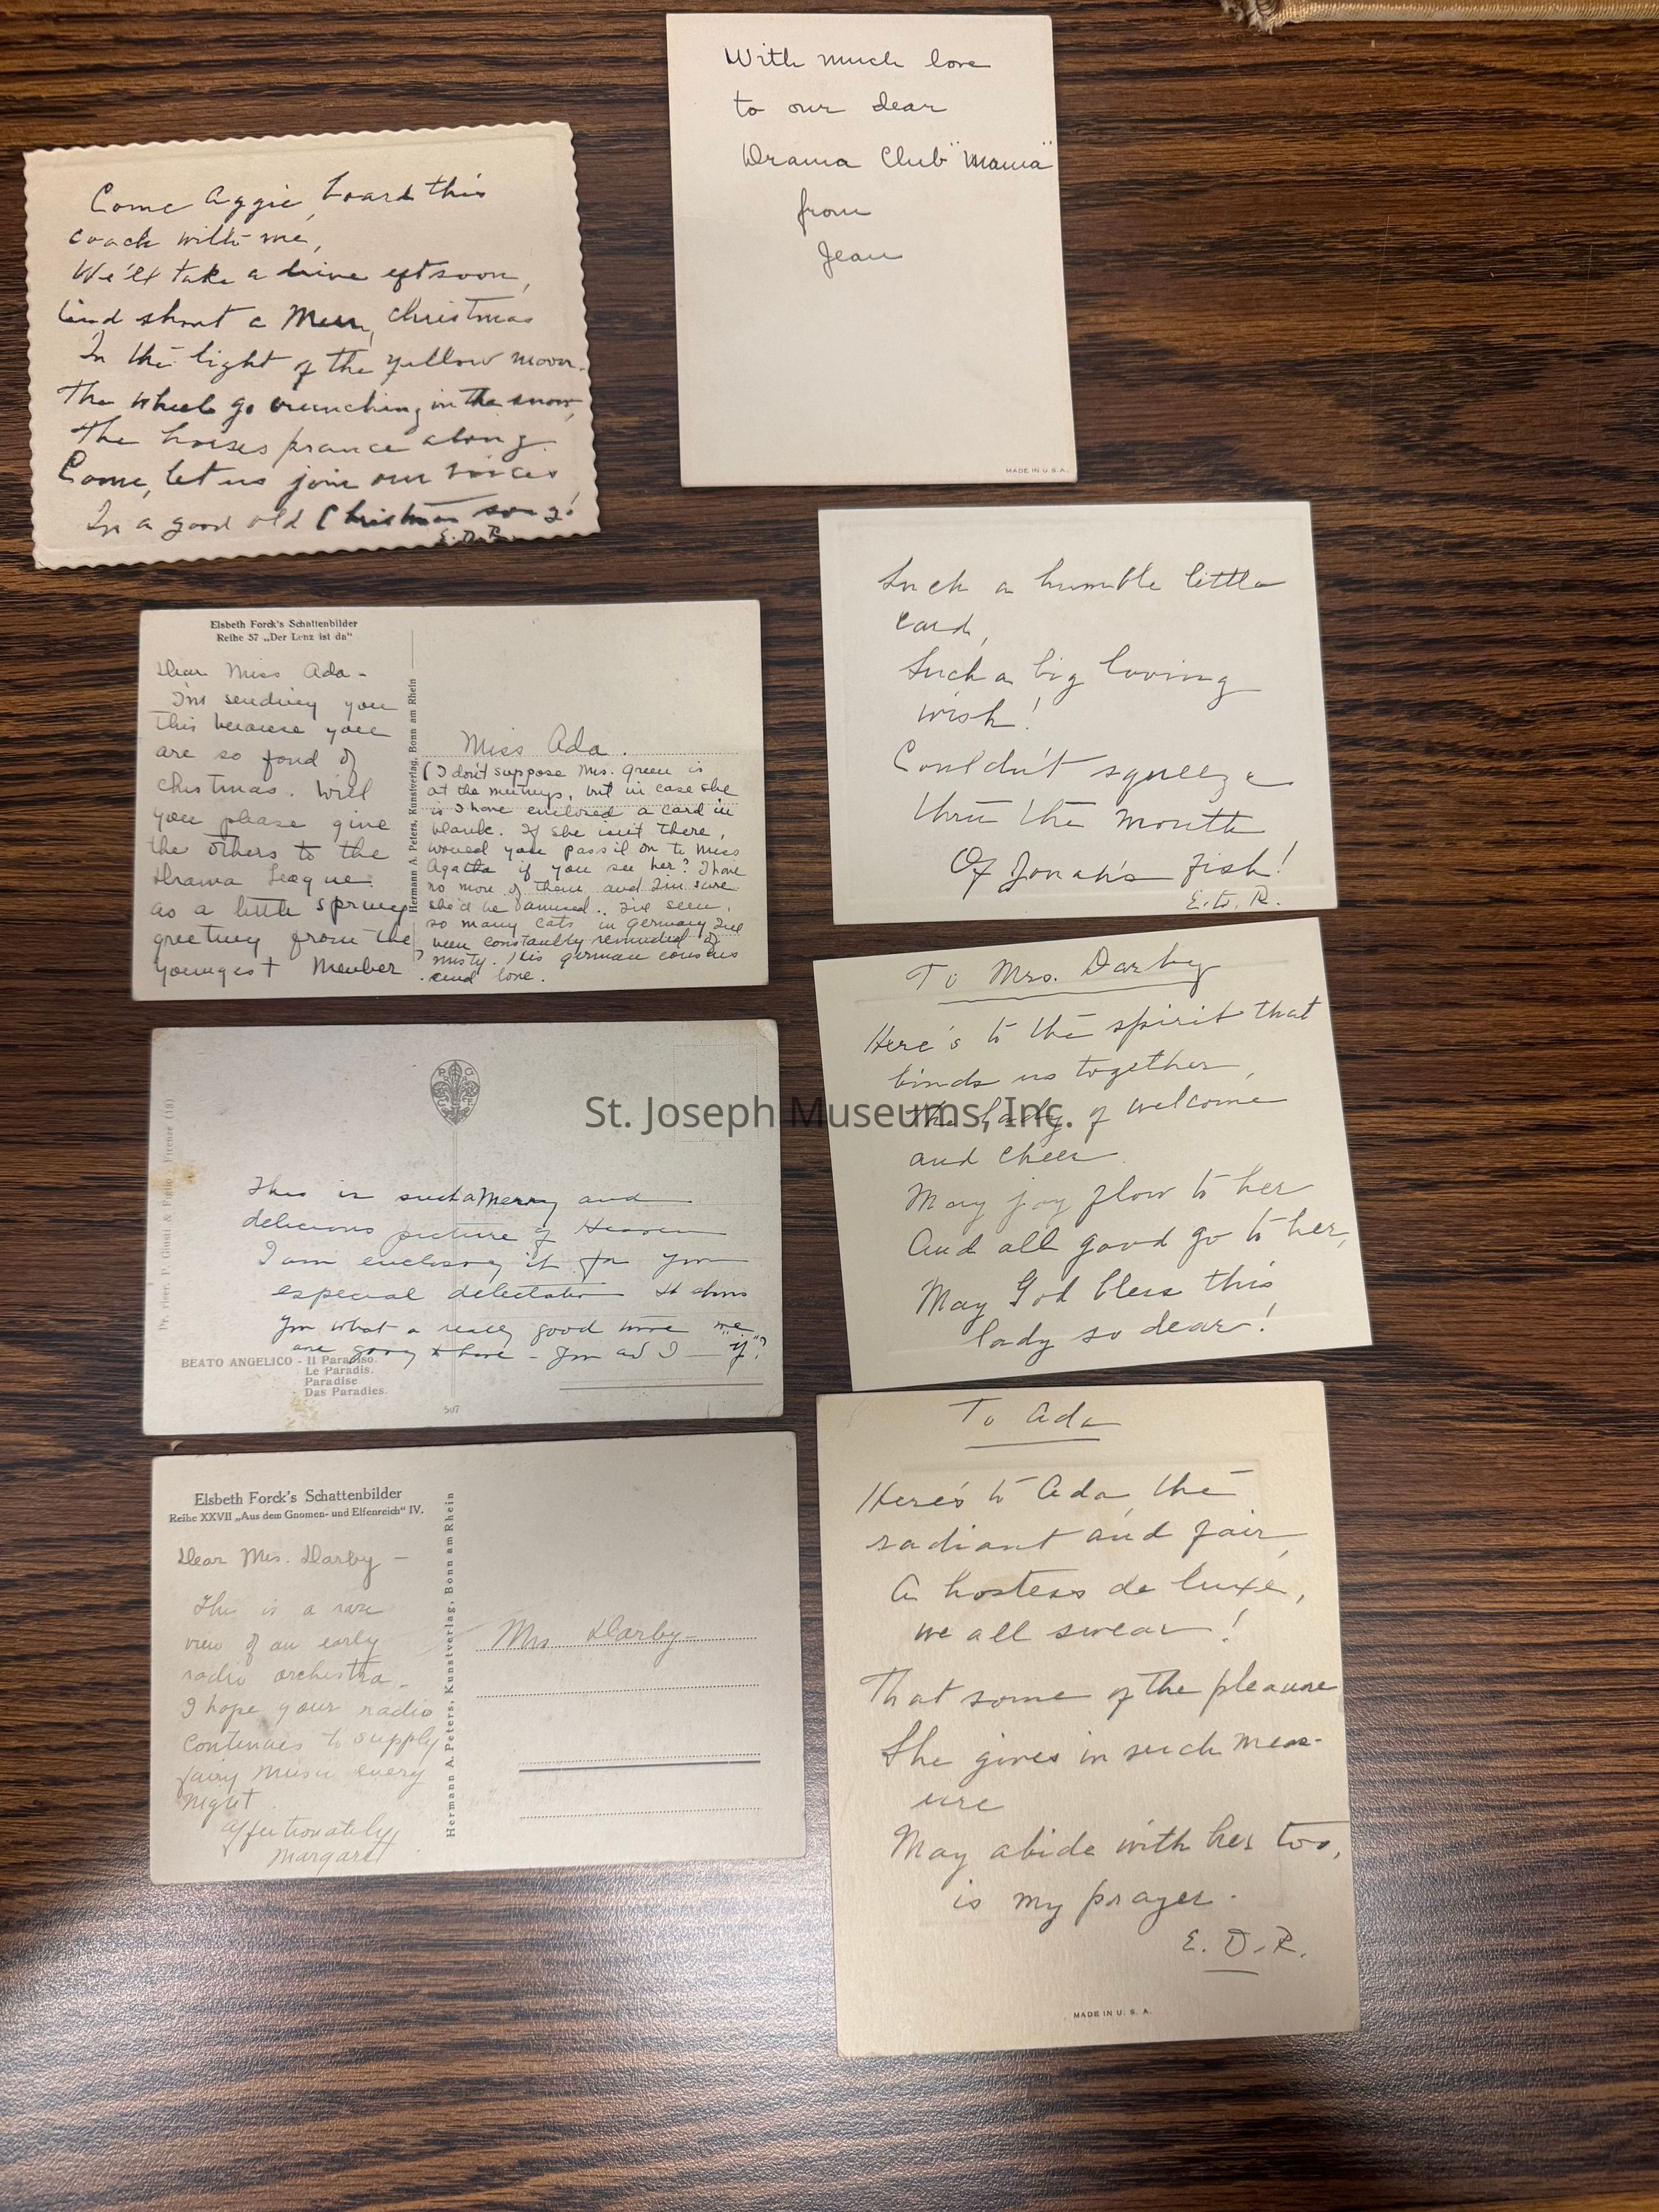 With much love
to our dear
Drama Club "Mama"
from
Jean
MADE IN U.S.A.
Come Aggie, board this
coach with me,
We'll take a drive eftsoon,
And shout a Merry Christmas
In the light of the yellow moon.
The wheels go crunching in the snow,
The horses prance along.
Come, let us join our voices
In a good old Christmas song!
E.D.R.
Such a humble little
card,
Such a big loving
wish!
Couldn't squeeze
thru the mouth
Of Jonah's fish!
E.D.R.
Elsbeth Forck's Schattenbilder
Reihe 57 „Der Lenz ist da"
Dear Miss Ada -
I'm sending you
this because you
are so fond of
christmas. Will
you please give
the others to the
Drama League
as a little spring
greeting from the
youngest member
Hermann A. Peters, Kunstverlag, Bonn am Rhein
Miss Ada.
(I don't suppose Mrs. Green is
at the meetings, but in case she
is I have enclosed a card in
blank. If she isn't there,
would you pass it on to Miss
Agatha if you see her? I have
no more of them and I'm sure
she'd be amused.. I've seen
so many cats in Germany I've
been constantly reminded of
Misty. His german cousins
send love.
To Mrs. Darby
Here's to the spirit that
binds us together,
The lady of welcome
and cheer.
May joy flow to her
And all good go to her,
May God bless this
lady so dear!
St. Joseph Museums, Inc.
This is such a Merry and
delicious picture of Heaven
I am enclosing it for your
especial delectation It shows
you what a really good time we
are going to have - You and I - "if"?
BEATO ANGELICO - Il Paradiso.
Le Paradis.
Paradise
Das Paradies.
507
To Ada
Here's to Ada, the
radiant and fair,
A hostess de luxe,
we all swear!
That some of the pleasure
She gives in such meas-
ure
May abide with her too,
is my prayer.
E. D. R.
MADE IN U. S. A.
Elsbeth Forck's Schattenbilder
Reihe XXVII „Aus dem Gnomen- und Elfenreich" IV.
Dear Mrs. Darby -
This is a rare
view of an early
radio orchestra.
I hope your radio
continues to supply
fairy music every
night
affectionately
Margaret
Hermann A. Peters, Kunstverlag, Bonn am Rhein
Mrs Darby-